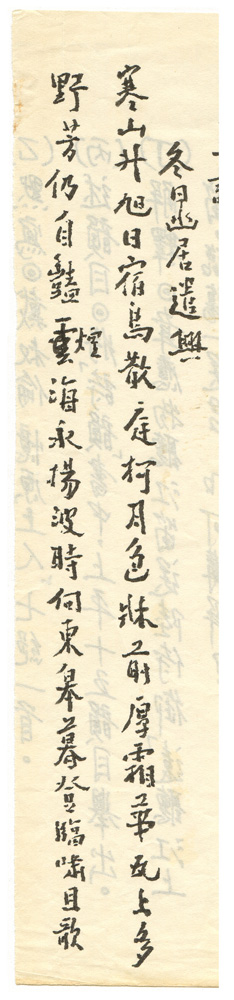 冬日幽居遣興
寒山升旭日宿鳥散庭柯月色牀前厚霜華瓦上多
野芳仍自豔雲煙海永揚波時向東皋暮登臨嘯且歌